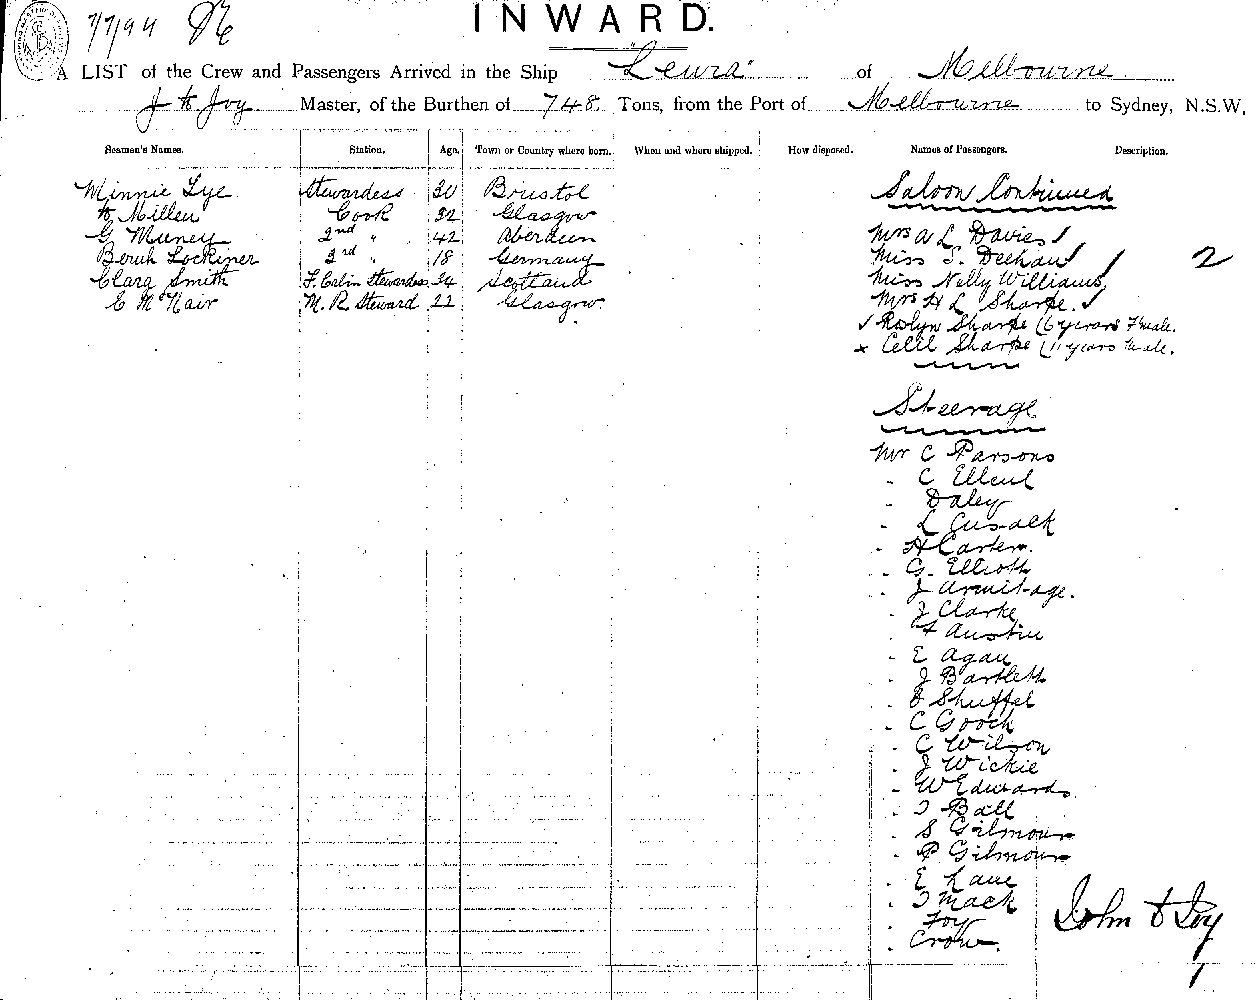 7/7/94
INWARD.
A LIST of the Crew and Passengers Arrived in the Ship "Leura" of Melbourne
Joy Master, of the Burthen of 748 Tons, from the Port of Melbourne to Sydney, N.S.W.
Seamen's Names. Station. Age. Town or Country where born. When and where shipped. How disposed. Names of Passengers. Description.
Minnie Lye Stewardess 30 Bristol Saloon Continued
Millen Cook 32 Glasgow
G Muney 2nd " 42 Aberdeen Mrs A L Davies
Lockiner 3rd " 18 Germany Miss 2
Clara Smith Stewardess 24 Scotland Miss Nelly Williams
C McNair M. R. Steward 22 Glasgow Mrs H L Sharpe
Roslyn Sharpe (6 years Female.
x Cecil Sharpe (11 years Male.
Steerage
Mr C Parsons
- C Elleul
- Daley
- L Cusack
- H Carter.
- G. Elliott
- J Armitage.
- J Clarke
- F Austin
- E Agau
- J Bartlett
- Shuffel
- C Gooch
- C Wilson
- J Wickie
- W Edwards
- T Ball
- S Gilmour
- P Gilmour
- E Lane
- T Mack
- Foy
- Crow.
John Joy